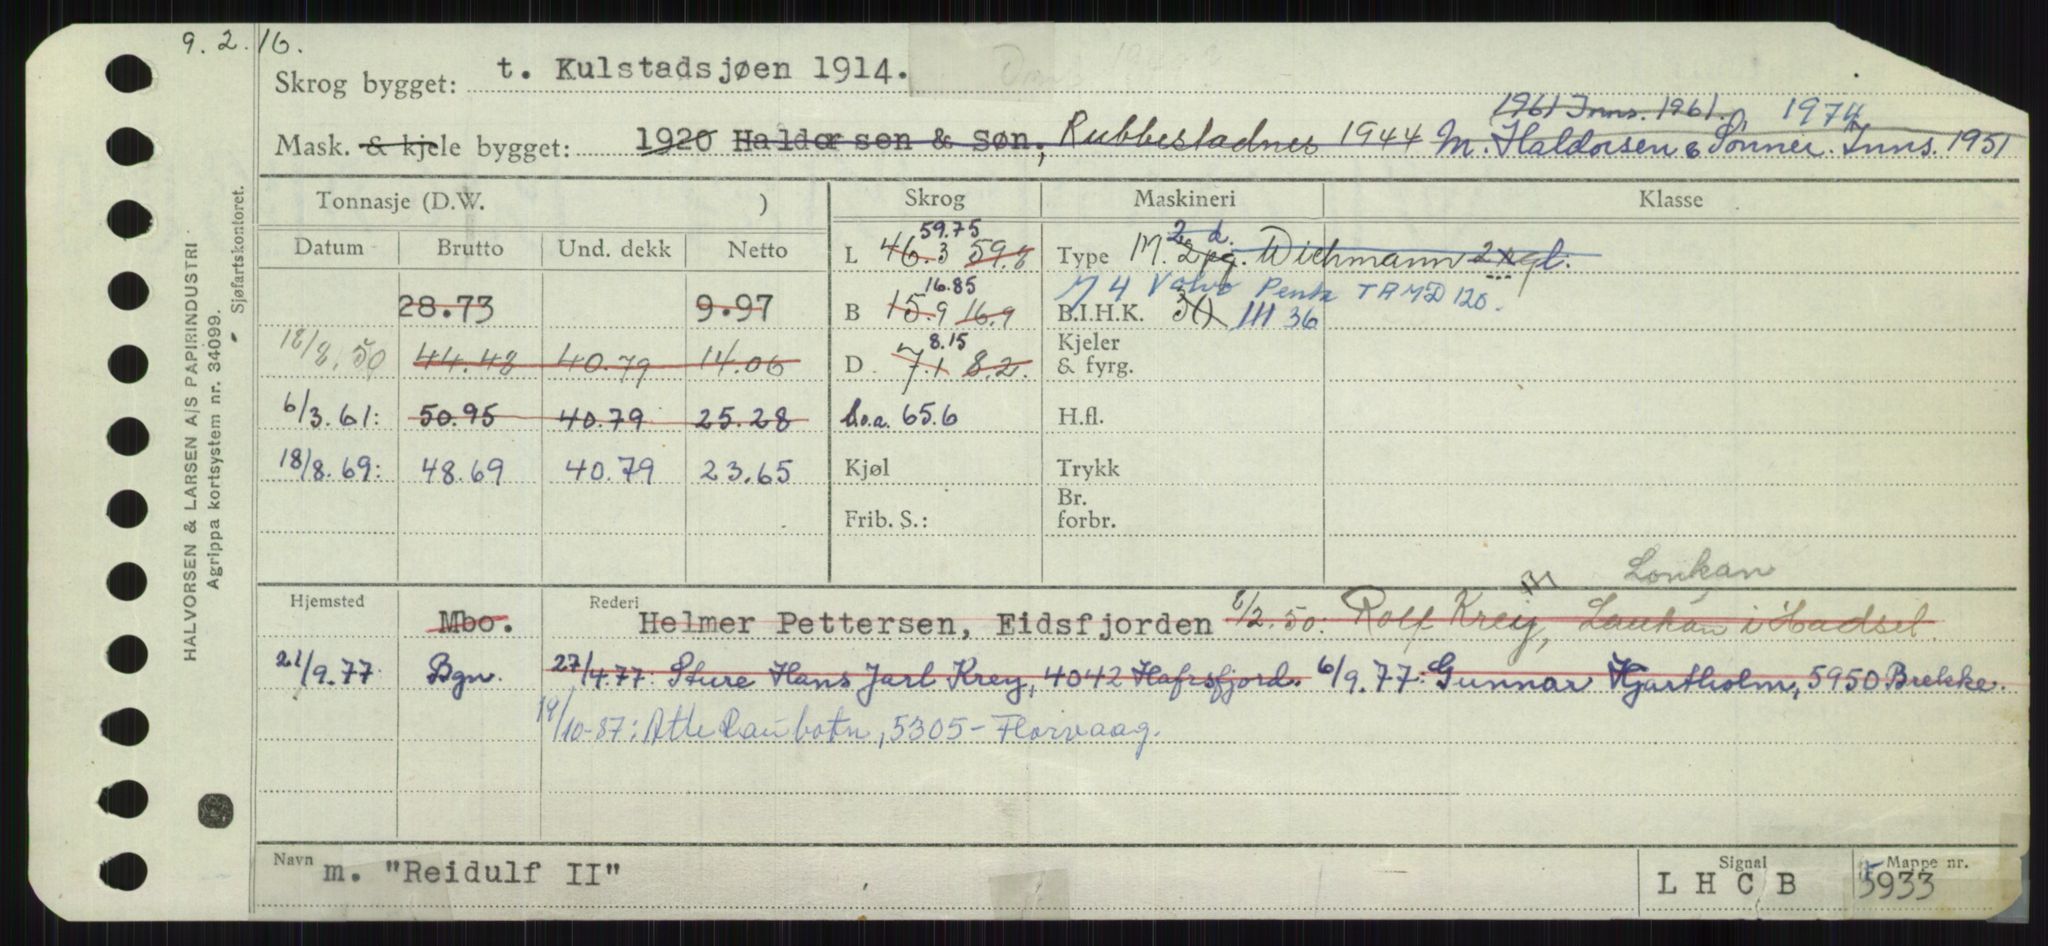 9. 2. 16.
Skrog bygget: t. Kulstadsjøen 1914.
1961 Inns. 1961. 1974
Mask. & kjele bygget: 1920 Haldorsen & Søn, Rubbestadnes 1944 M. Haldorsen & Sønner. Inns. 1951
Tonnasje (D.W. ) Skrog Maskineri Klasse
Datum Brutto Und. dekk Netto
59.75
L 46.3 59.8
Type M. 2 pg. 2 d. Wichmann 2
M 4 Volvo Penta TAMD 120.
28.73 9.97
16.85
B 15.9 16.9
B.I.H.K. 30 111 36
18/8.50 44.48 40.79 14.06
8.15
D. 7.1 8.2.
Kjeler & fyrg.
6/3.61: 50.95 40.79 25.28
L.o.a. 65.6
H.fl.
18/8.69: 48.69 40.79 23.65
Kjøl
Trykk
Frib. S.:
Br. forbr.
Lonkan
Hjemsted Mbo. Rederi Helmer Pettersen, Eidsfjorden 8/2.50: Rolf Krey, Laukan i Hadsel.
21/9.77 Bgn. 27/4.77: Sture Hans Jarl Krey, 4042 Hafrsfjord. 6/9.77: Gunnar Hjartholm, 5950 Brekke.
19/10-87: Atle Raubotn, 5305 - Florvaag.
Navn m. "Reidulf II"
Signal L H C B
Mappe nr. 5933
HALVORSEN & LARSEN A/S PAPIRINDUSTRI
Agrippa kortsystem nr. 34099. - Sjøfartskontoret.